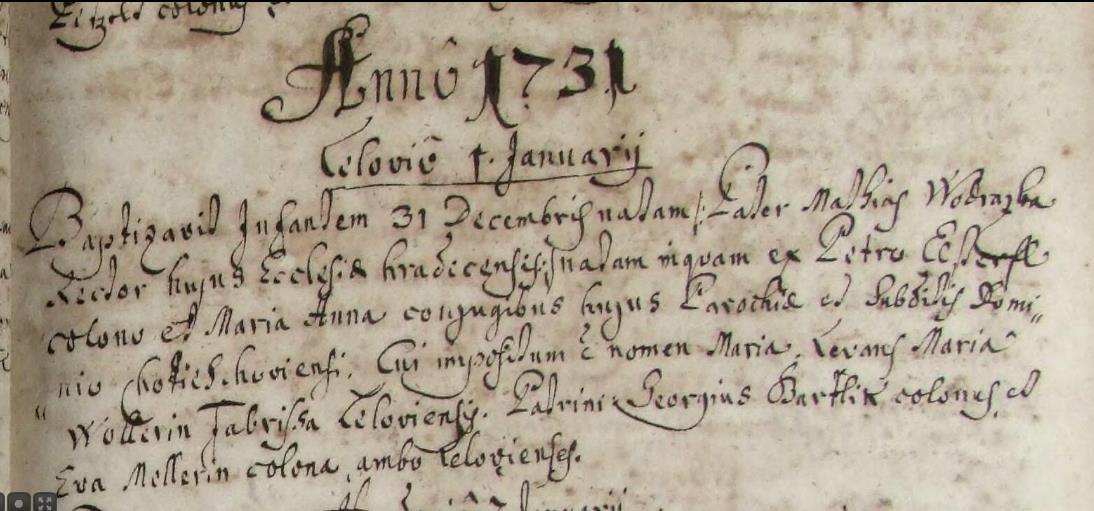 colonus
Annô 1731
Teloviê 1. Januarij
Baptizavit Infantem 31 Decembris natam /: Pater Mathias Wodrazka
Rector hujus Ecclesiæ hradecensis :/ natam inquam ex Petro
colono et Maria Anna conjugibus hujus Parochiæ et subditis Domi„
„nio Chotieschoviensi. Cui impositum ẽ nomen Maria. Levans Maria
Wollerin Fabrissa Teloviensis. Patrini Georgius Bartlik colonus et
Eva Mellerin colona ambo Telovienses.
Januarij